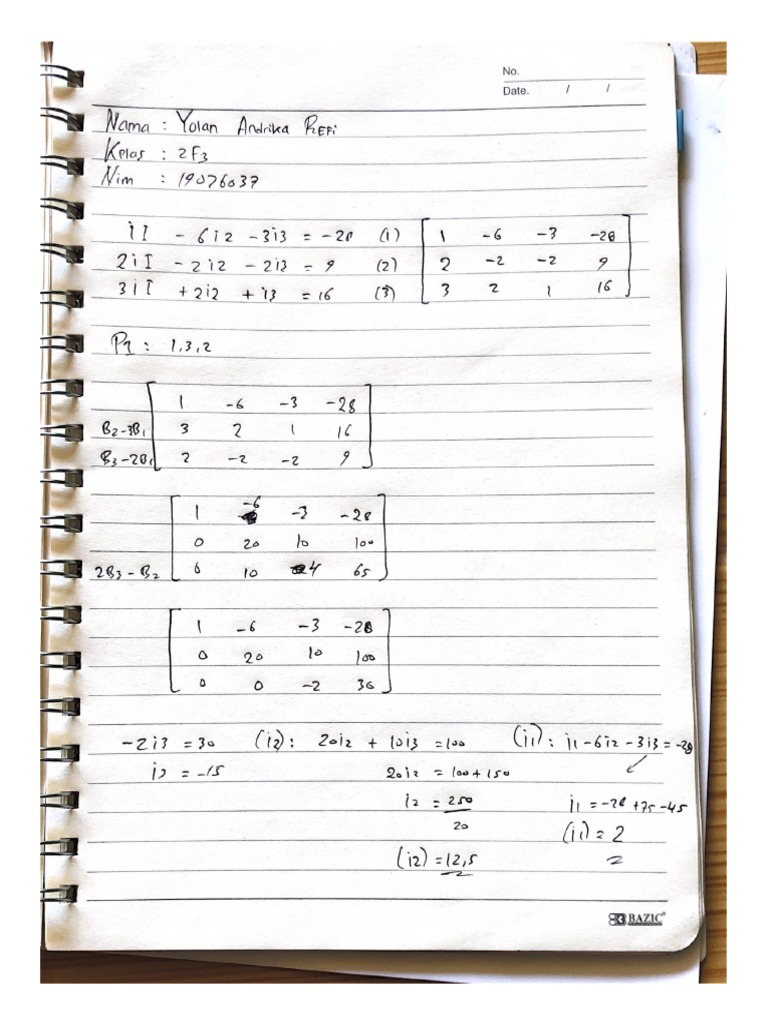 No.
Date. / /
Nama : Yolan Andrika Refi
Kelas : 2F3
Nim : 19076037
i1 - 6i2 - 3i3 = -28 (1) 1 -6 -3 -28
2i1 - 2i2 - 2i3 = 9 (2) 2 -2 -2 9
3i1 + 2i2 + i3 = 16 (3) 3 2 1 16
P1 : 1,3,2
1 -6 -3 -28
B2-3B1 3 2 1 16
B3-2B1 2 -2 -2 9
1 -6 -3 -28
0 20 10 100
2B3-B2 0 10 4 65
1 -6 -3 -28
0 20 10 100
0 0 -2 30
-2i3 = 30 (i2): 20i2 + 10i3 = 100 (i1): i1 - 6i2 - 3i3 = -28
i3 = -15 20i2 = 100 + 150
i2 = 250/20 i1 = -28 + 75 - 45
(i1) = 2
(i2) = 12,5
BAZIC